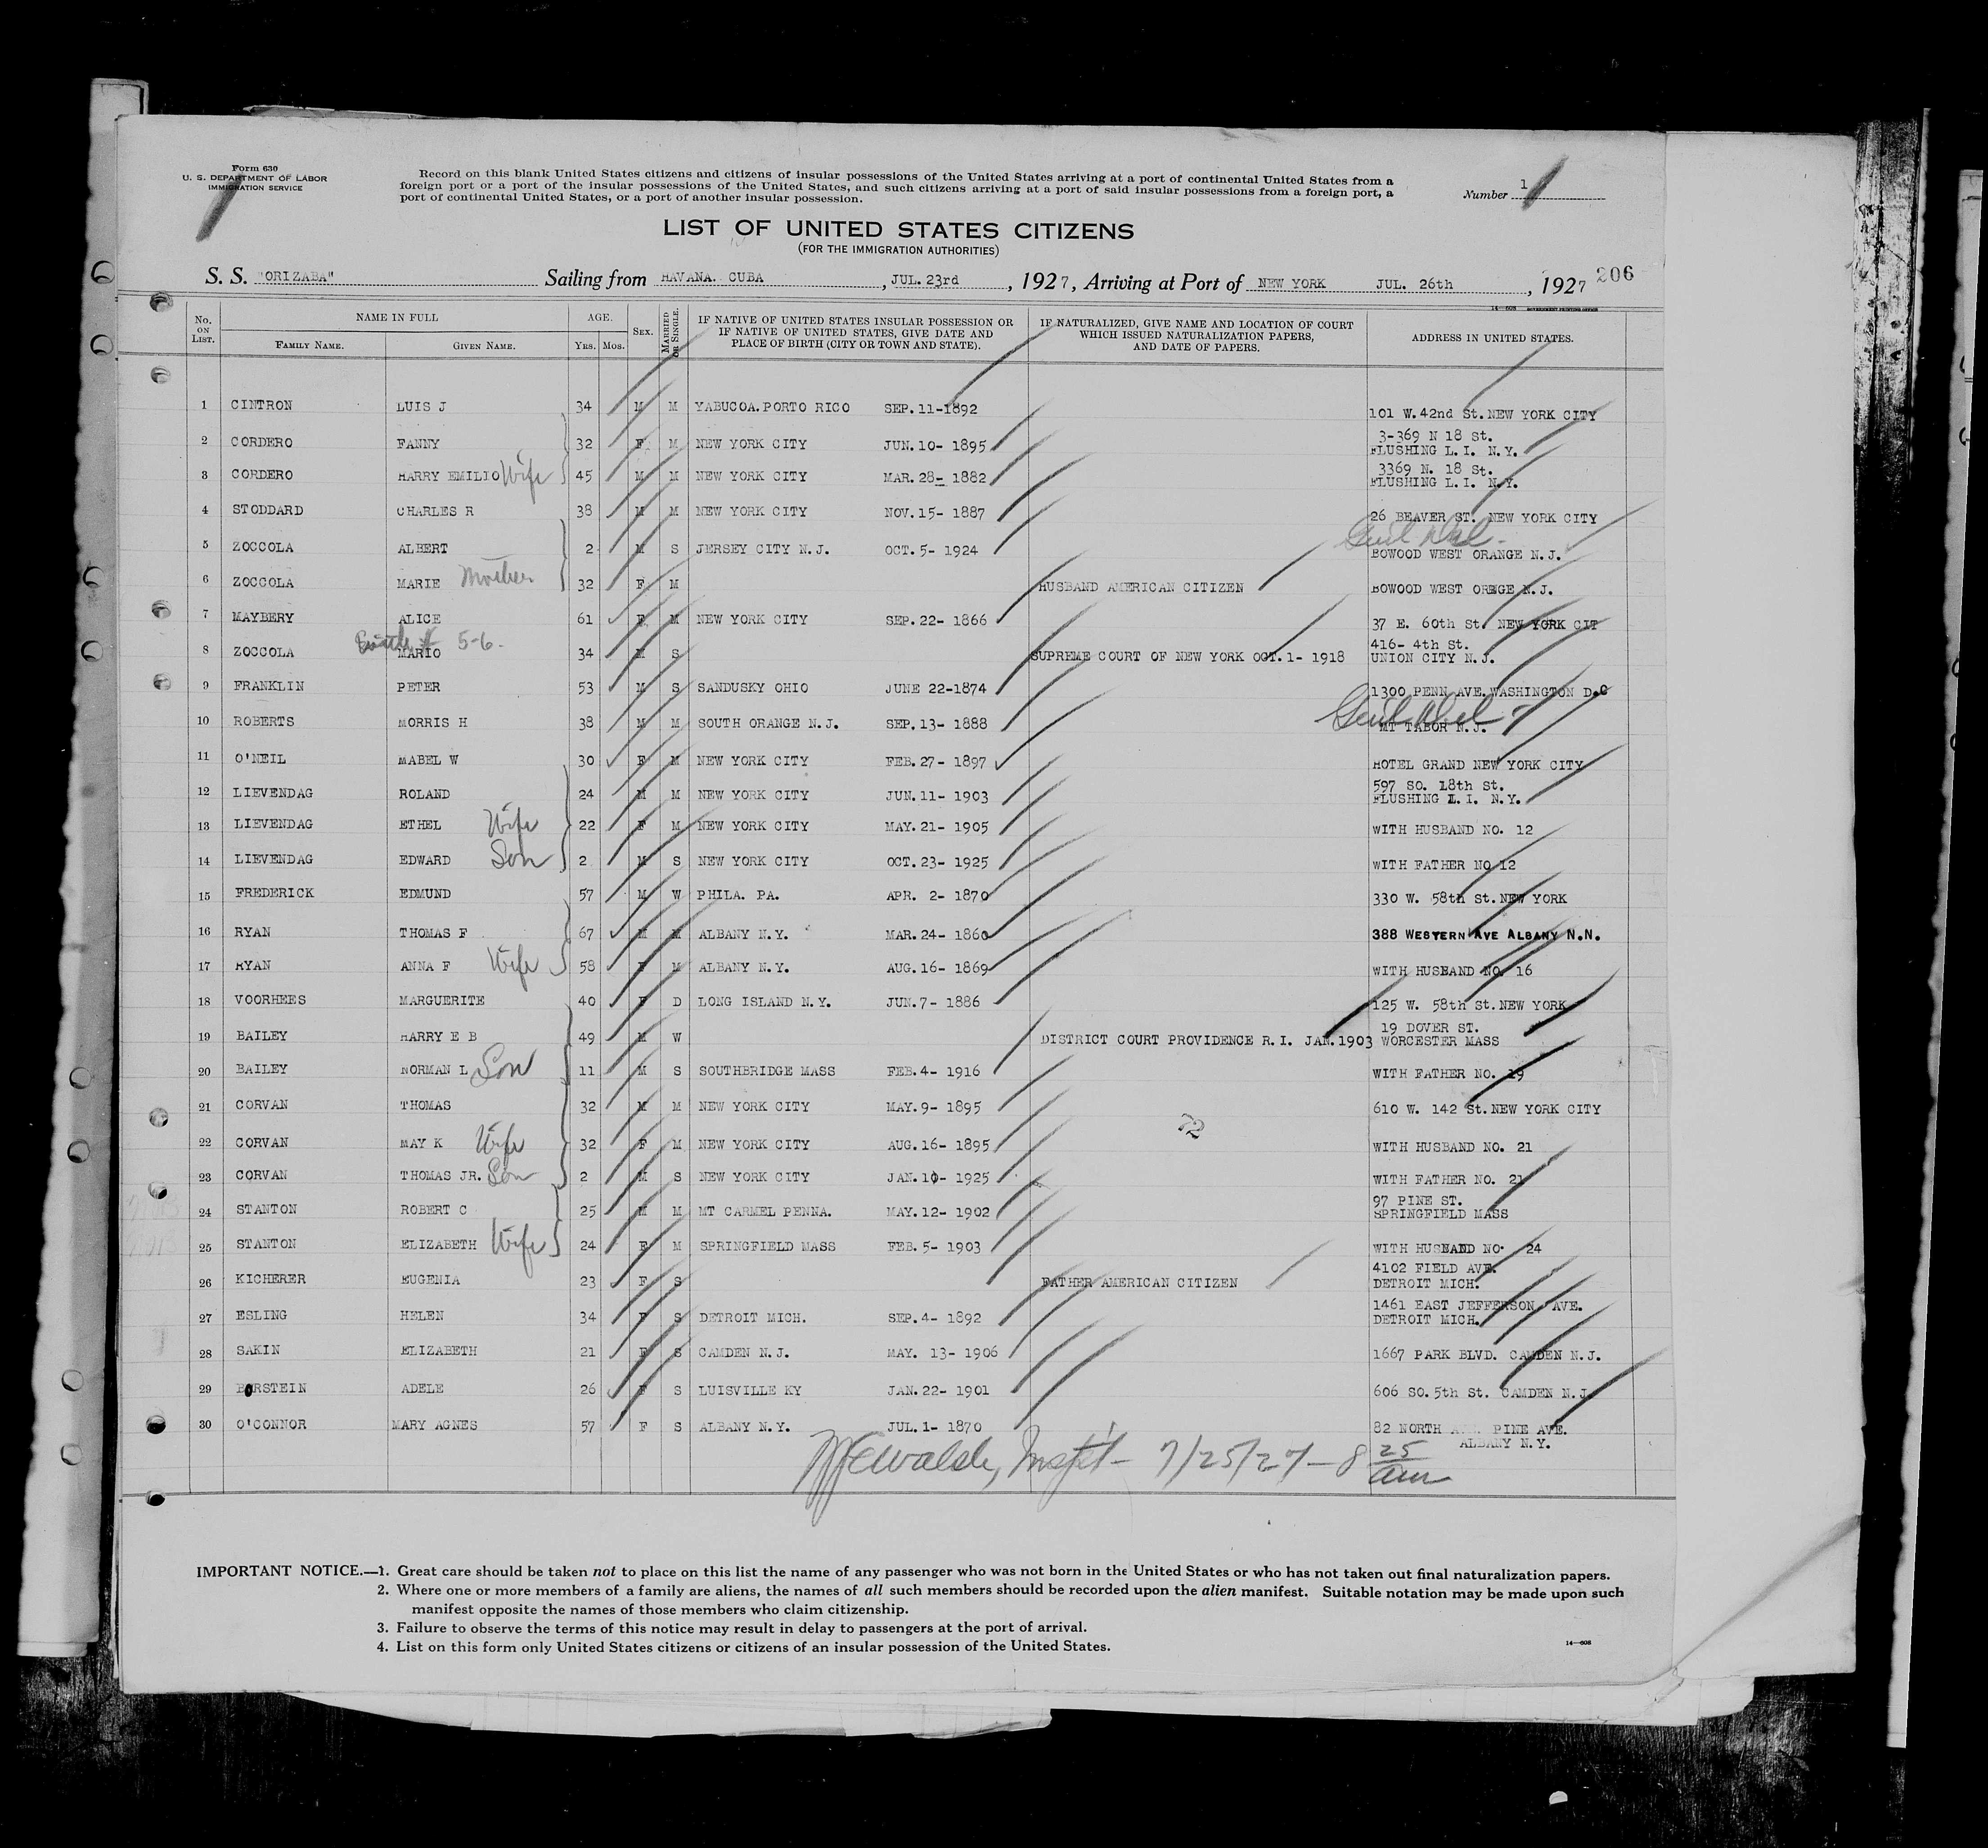 Form 630
U. S. DEPARTMENT OF LABOR
IMMIGRATION SERVICE
Record on this blank United States citizens and citizens of insular possessions of the United States arriving at a port of continental United States from a
foreign port or a port of the insular possessions of the United States, and such citizens arriving at a port of said insular possessions from a foreign port, a
port of continental United States, or a port of another insular possession.
Number 1
LIST OF UNITED STATES CITIZENS
(FOR THE IMMIGRATION AUTHORITIES)
S. S. "ORIZABA" Sailing from HAVANA. CUBA, JUL. 23rd, 1927, Arriving at Port of NEW YORK JUL. 26th, 1927 206
No. ON LIST. NAME IN FULL FAMILY NAME. GIVEN NAME. AGE. YRS. MOS. SEX. MARRIED OR SINGLE. IF NATIVE OF UNITED STATES INSULAR POSSESSION OR IF NATIVE OF UNITED STATES, GIVE DATE AND PLACE OF BIRTH (CITY OR TOWN AND STATE). IF NATURALIZED, GIVE NAME AND LOCATION OF COURT WHICH ISSUED NATURALIZATION PAPERS, AND DATE OF PAPERS. ADDRESS IN UNITED STATES.
1 CINTRON LUIS J 34 M M YABUCOA. PORTO RICO SEP. 11-1892 101 W. 42nd St. NEW YORK CITY
2 CORDERO FANNY 32 F M NEW YORK CITY JUN. 10- 1895 3-369 N 18 St. FLUSHING L. I. N. Y.
3 CORDERO HARRY EMILIO Wife 45 M M NEW YORK CITY MAR. 28- 1882 3369 N. 18 St. FLUSHING L. I. N.Y.
4 STODDARD CHARLES R 38 M M NEW YORK CITY NOV. 15- 1887 26 BEAVER ST. NEW YORK CITY
5 ZOCCOLA ALBERT 2 M S JERSEY CITY N. J. OCT. 5- 1924 BOWOOD WEST ORANGE N. J.
6 ZOCCOLA MARIE Mother 32 F M HUSBAND AMERICAN CITIZEN BOWOOD WEST ORENGE N. J.
7 MAYBERY ALICE 61 F M NEW YORK CITY SEP. 22- 1866 37 E. 60th St. NEW YORK CIT
5-6.
8 ZOCCOLA MARIO 34 M S SUPREME COURT OF NEW YORK OCT. 1- 1918 416- 4th St. UNION CITY N. J.
9 FRANKLIN PETER 53 M S SANDUSKY OHIO JUNE 22-1874 1300 PENN AVE. WASHINGTON D.C
10 ROBERTS MORRIS H 38 M M SOUTH ORANGE N. J. SEP. 13- 1888 MT TABOR N. J.
11 O'NEIL MABEL W 30 F M NEW YORK CITY FEB. 27- 1897 HOTEL GRAND NEW YORK CITY
12 LIEVENDAG ROLAND 24 M M NEW YORK CITY JUN. 11- 1903 597 SO. 18th St. FLUSHING L. I. N. Y.
13 LIEVENDAG ETHEL Wife 22 F M NEW YORK CITY MAY. 21- 1905 WITH HUSBAND NO. 12
14 LIEVENDAG EDWARD Son 2 M S NEW YORK CITY OCT. 23- 1925 WITH FATHER NO 12
15 FREDERICK EDMUND 57 M W PHILA. PA. APR. 2- 1870 330 W. 58th St. NEW YORK
16 RYAN THOMAS F 67 M M ALBANY N. Y. MAR. 24- 1860 388 WESTERN AVE ALBANY N.N.
17 RYAN ANNA F Wife 58 F M ALBANY N. Y. AUG. 16- 1869 WITH HUSBAND NO. 16
18 VOORHEES MARGUERITE 40 F D LONG ISLAND N. Y. JUN. 7- 1886 125 W. 58th St. NEW YORK
19 BAILEY HARRY E B 49 M W DISTRICT COURT PROVIDENCE R. I. JAN. 1903 19 DOVER ST. WORCESTER MASS
20 BAILEY NORMAN L Son 11 M S SOUTHBRIDGE MASS FEB. 4- 1916 WITH FATHER NO. 19
21 CORVAN THOMAS 32 M M NEW YORK CITY MAY. 9- 1895 610 W. 142 St. NEW YORK CITY
22 CORVAN MAY K Wife 32 F M NEW YORK CITY AUG. 16- 1895 WITH HUSBAND NO. 21
23 CORVAN THOMAS JR. Son 2 M S NEW YORK CITY JAN. 10- 1925 WITH FATHER NO. 21
24 STANTON ROBERT C 25 M M MT CARMEL PENNA. MAY. 12- 1902 97 PINE ST. SPRINGFIELD MASS
25 STANTON ELIZABETH Wife 24 F M SPRINGFIELD MASS FEB. 5- 1903 WITH HUSBAND NO. 24
26 KICHERER EUGENIA 23 F S FATHER AMERICAN CITIZEN 4102 FIELD AVE. DETROIT MICH.
27 ESLING HELEN 34 F S DETROIT MICH. SEP. 4- 1892 1461 EAST JEFFERSON AVE. DETROIT MICH.
28 SAKIN ELIZABETH 21 F S CAMDEN N. J. MAY. 13- 1906 1667 PARK BLVD. CAMDEN N. J.
29 BORSTEIN ADELE 26 F S LUISVILLE KY JAN. 22- 1901 606 SO. 5th St. CAMDEN N. J.
30 O'CONNOR MARY AGNES 57 F S ALBANY N. Y. JUL. 1- 1870 82 NORTH PINE AVE. ALBANY N. Y.
72
7/25/27 - 8 25 am
IMPORTANT NOTICE.—1. Great care should be taken not to place on this list the name of any passenger who was not born in the United States or who has not taken out final naturalization papers.
2. Where one or more members of a family are aliens, the names of all such members should be recorded upon the alien manifest. Suitable notation may be made upon such
manifest opposite the names of those members who claim citizenship.
3. Failure to observe the terms of this notice may result in delay to passengers at the port of arrival.
4. List on this form only United States citizens or citizens of an insular possession of the United States.
14—608